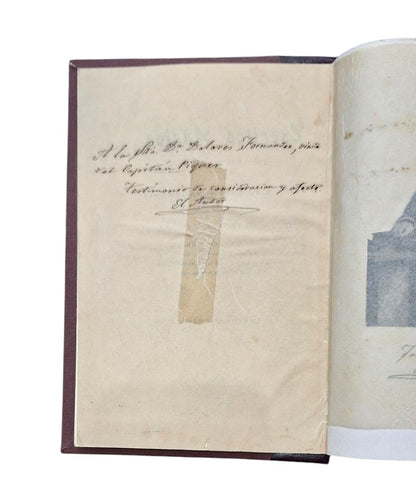 A la Sra. Da. Dolores Fernandez, viuda
del Capitán Piquer
testimonio de consideracion y afecto
El Autor